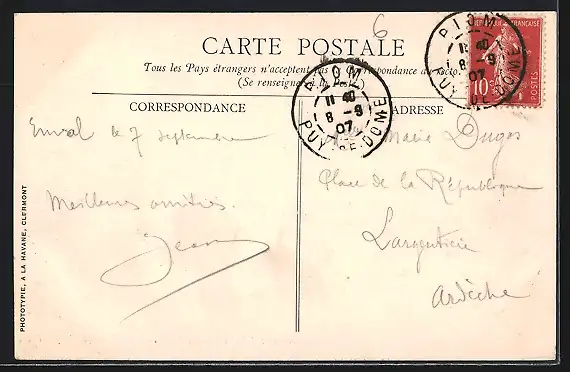 6
CARTE POSTALE
Tous les Pays étrangers n'acceptent pas la Correspondance au recto.
(Se renseigner à la Poste)
CORRESPONDANCE
ADRESSE
RIOM
11 40
8 - 9
07
PUY-DE-DOME
RIOM
11 40
8 - 9
07
PUY-DE-DOME
REPUBLIQUE FRANÇAISE
10
POSTES
Enval le 7 septembre
Meilleures amitiés.
Jean
Marie
Place de la République
Largentière
Ardèche
PHOTOTYPIE, A LA HAVANE, CLERMONT